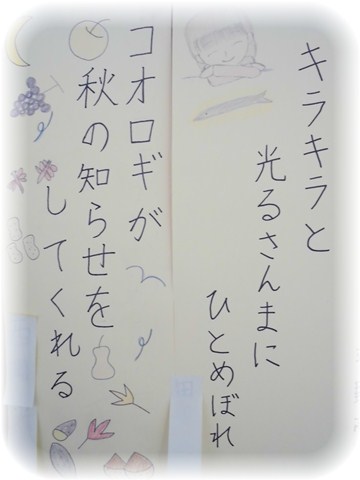 キラキラと
光るさんまに
ひとめぼれ
コオロギが
秋の知らせを
してくれる